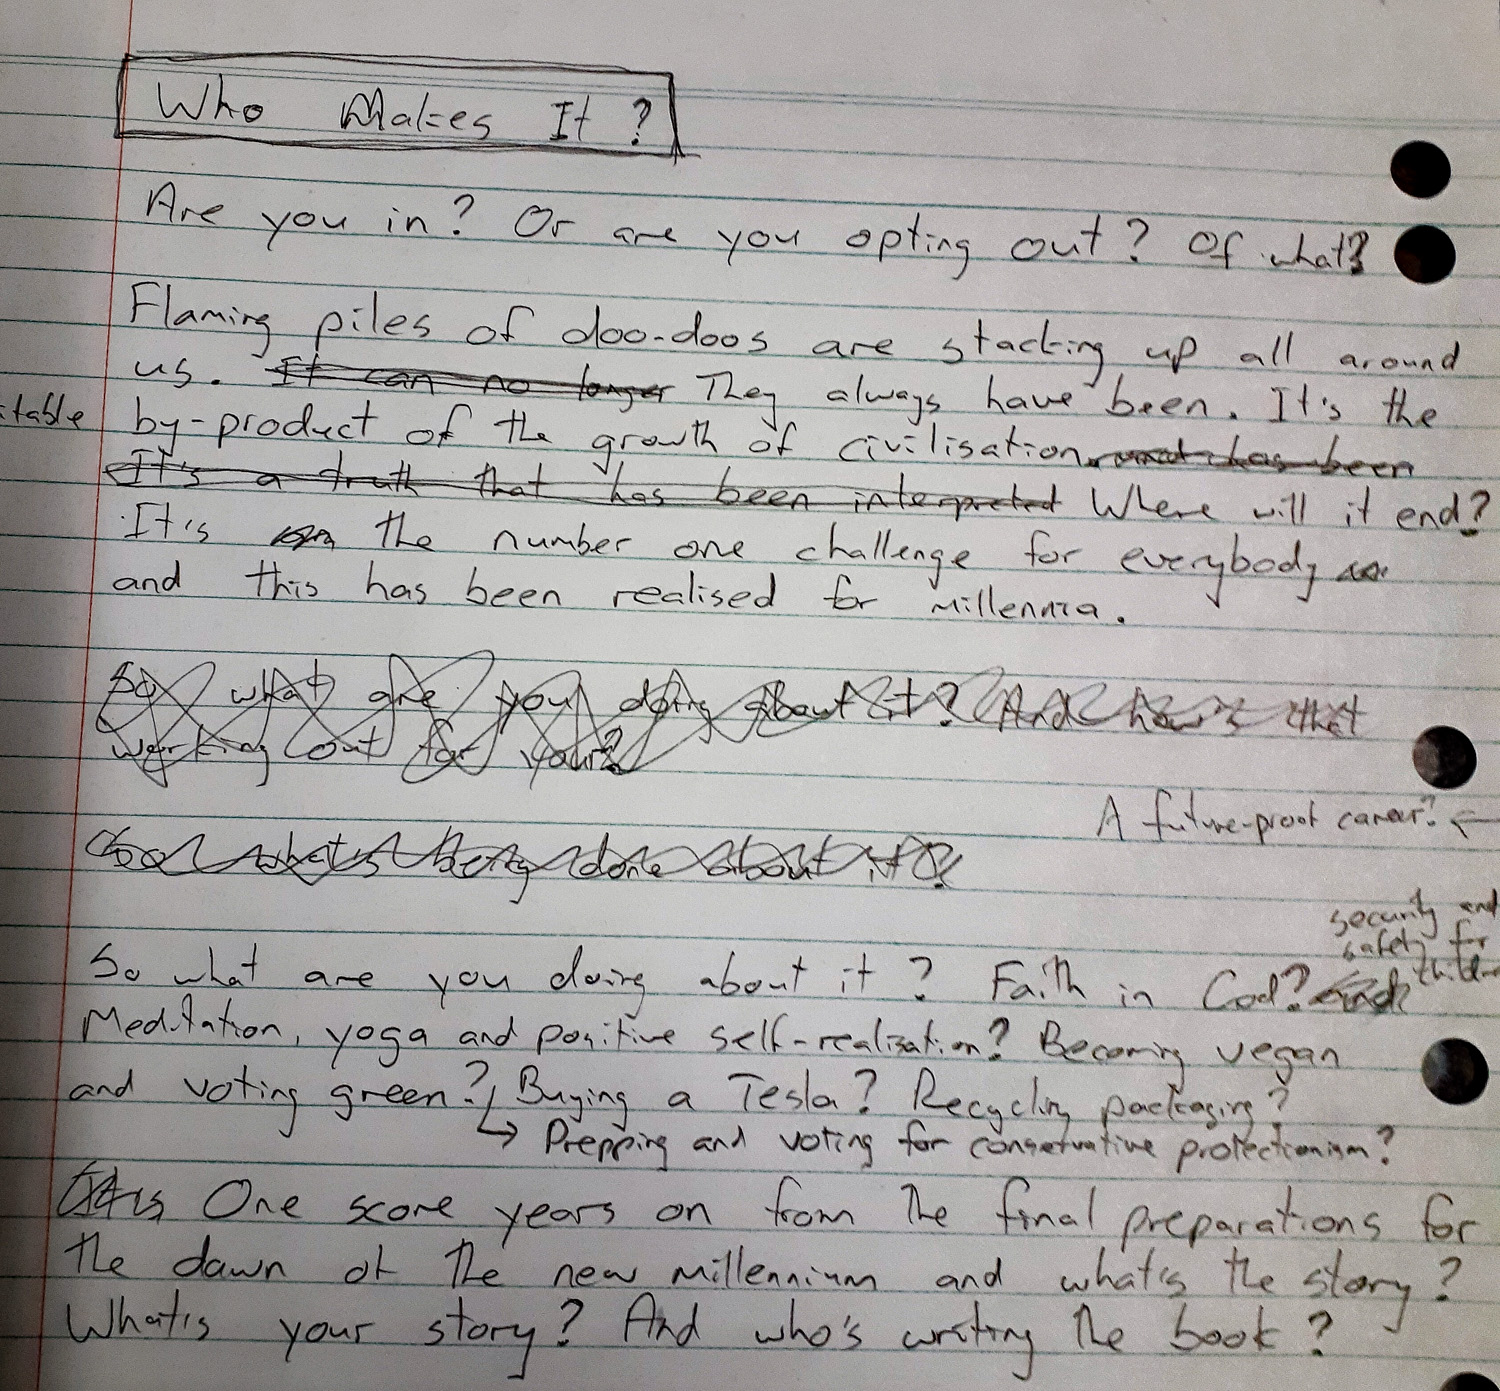 Who Makes It?
Are you in? Or are you opting out? Of what?
Flaming piles of doo-doos are stacking up all around
us. It can no longer They always have been. It's the
itable by-product of the growth of civilisation. has been
It's a truth that has been interpreted Where will it end?
It's the number one challenge for everybody
and this has been realised for millennia.
So what are you doing about it? And how's that
working out for you?
A future-proof career? ←
So what's being done about it?
security and
safety for
So what are you doing about it? Faith in God?
Meditation, yoga and positive self-realisation? Becoming vegan
and voting green? Buying a Tesla? Recycling packaging?
→ Prepping and voting for conservative protectionism?
It's One score years on from the final preparations for
the dawn of the new millennium and what's the story?
What's your story? And who's writing the book?